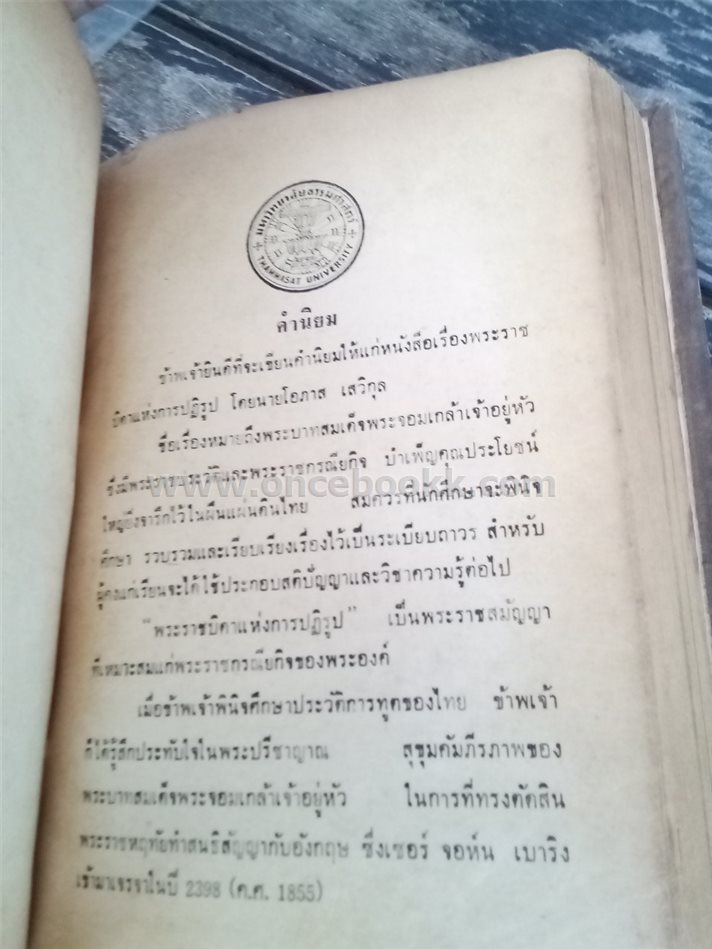 มหาวิทยาลัยธรรมศาสตร์
THAMMASAT UNIVERSITY
คำนิยม
ข้าพเจ้ายินดีที่จะเขียนคำนิยมให้แก่หนังสือเรื่องพระราช
บิดาแห่งการปฏิรูป โดยนายโอภาส เสวิกุล
ชื่อเรื่องหมายถึงพระบาทสมเด็จพระจอมเกล้าเจ้าอยู่หัว
ซึ่งมีพระราชประวัติและพระราชกรณียกิจ บำเพ็ญคุณประโยชน์
www.oncebookk.com
ใหญ่ยิ่งจารึกไว้ในผืนแผ่นดินไทย สมควรที่นักศึกษาจะพินิจ
ศึกษา รวบรวมและเรียบเรียงเรื่องไว้เป็นระเบียบถาวร สำหรับ
ผู้คงแก่เรียนจะได้ใช้ประกอบสติปัญญาและวิชาความรู้ต่อไป
"พระราชบิดาแห่งการปฏิรูป" เป็นพระราชสมัญญา
ที่เหมาะสมแก่พระราชกรณียกิจของพระองค์
เมื่อข้าพเจ้าพินิจศึกษาประวัติการทูตของไทย ข้าพเจ้า
ก็ได้รู้สึกประทับใจในพระปรีชาญาณ สุขุมคัมภีรภาพของ
พระบาทสมเด็จพระจอมเกล้าเจ้าอยู่หัว ในการที่ทรงตัดสิน
พระราชหฤทัยทำสนธิสัญญากับอังกฤษ ซึ่งเซอร์ จอห์น เบาริง
เข้ามาเจรจาในปี 2398 (ค.ศ. 1855)